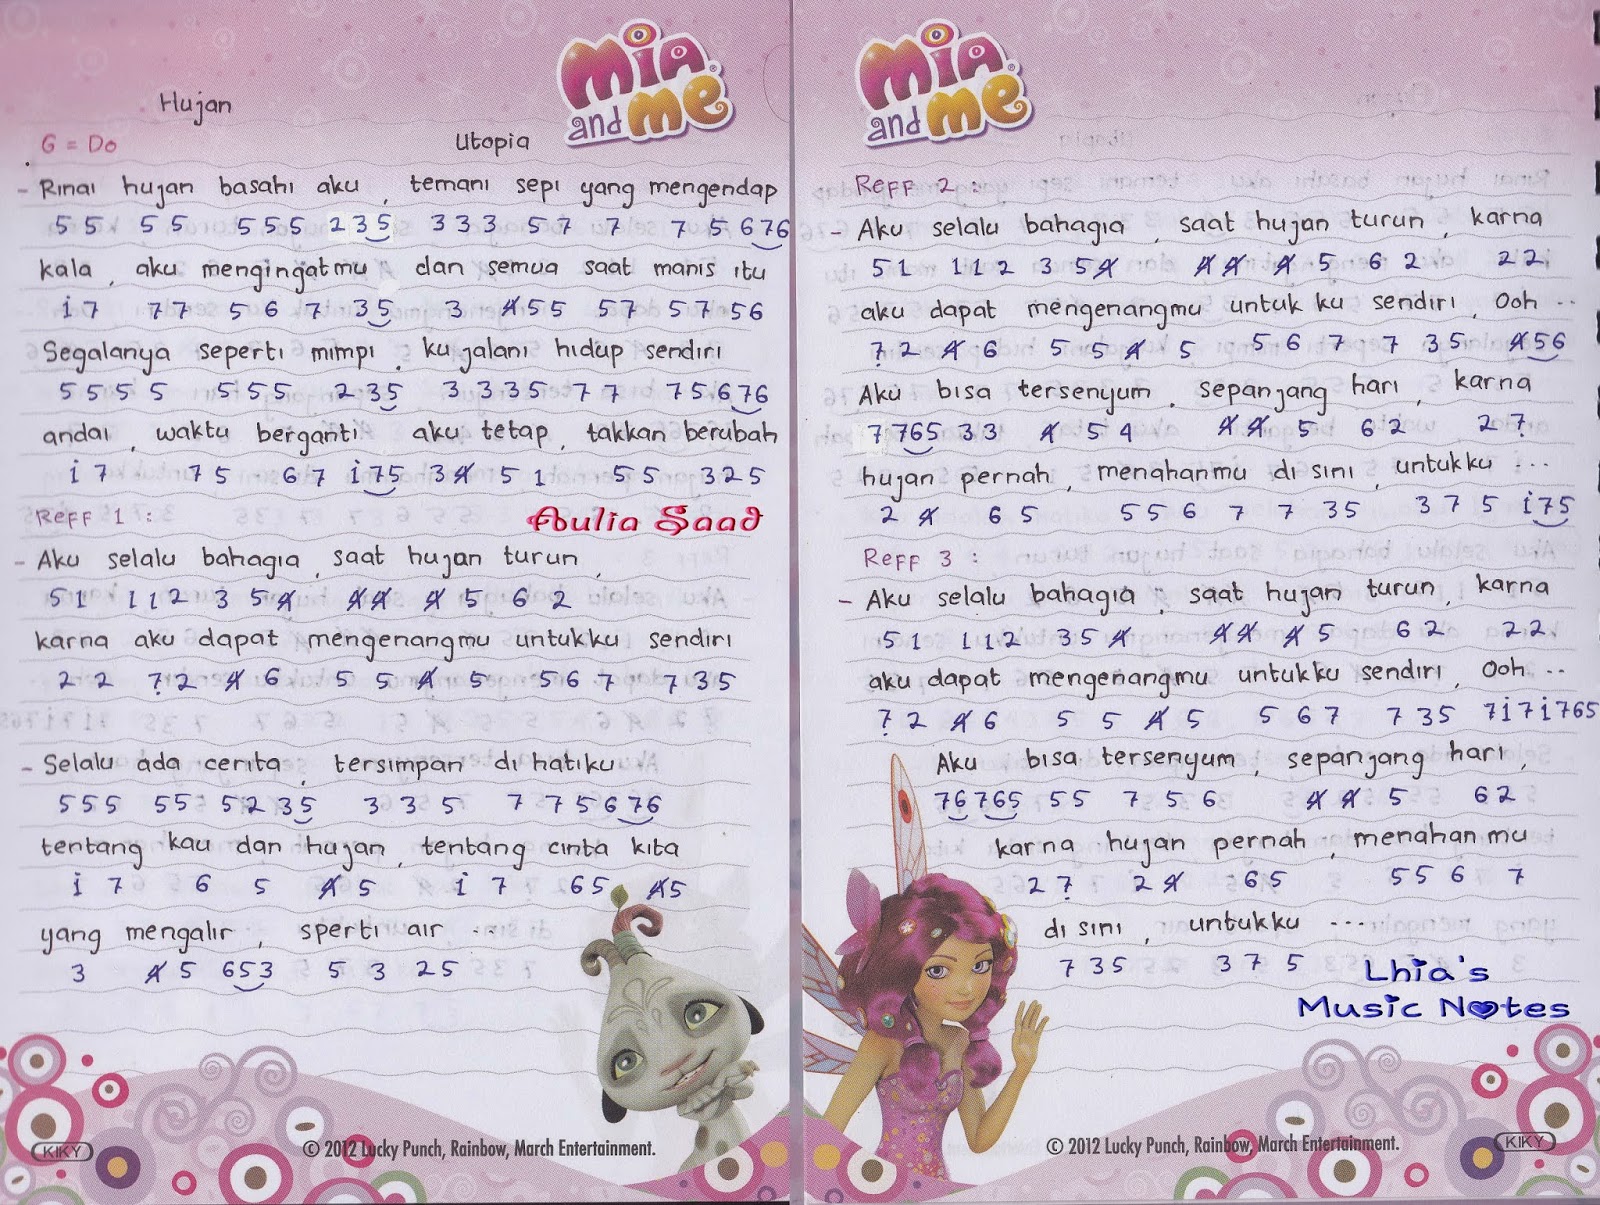 mia and me
Hujan
G = Do
Utopia
- Rinai hujan basahi aku, temani sepi yang mengendap
5 5 5 5 5 5 5 2 3 5 3 3 3 5 7 7 7 5 6 7 6
kala, aku mengingatmu, dan semua saat manis itu
i 7 7 7 5 6 7 3 5 3 4̸ 5 5 5 7 5 7 5 6
Segalanya seperti mimpi, kujalani hidup sendiri
5 5 5 5 5 5 5 2 3 5 3 3 3 5 7 7 7 5 6 7 6
andai, waktu berganti, aku tetap, takkan berubah
i 7 7 5 6 7 i 7 5 3 4̸ 5 1 5 5 3 2 5
Reff 1 :
Aulia Saad
- Aku selalu bahagia, saat hujan turun,
5 1 1 1 2 3 5 4̸ 4̸ 4̸ 4̸ 5 6 2
karna aku dapat mengenangmu untukku sendiri
2 2 7̣ 2 4̸ 6 5 5 4̸ 5 5 6 7 7 3 5
- Selalu ada cerita, tersimpan di hatiku
5 5 5 5 5 5 2 3 5 3 3 5 7 7 5 6 7 6
tentang kau dan hujan, tentang cinta kita
i 7 6 5 4̸ 5 i 7 6 5 4̸ 5
yang mengalir, sperti air ...
3 4̸ 5 6 5 3 5 3 2 5
KIKY
© 2012 Lucky Punch, Rainbow, March Entertainment.
mia and me
Reff 2 :
- Aku selalu bahagia, saat hujan turun, karna
5 1 1 1 2 3 5 4̸ 4̸ 4̸ 4̸ 5 6 2 2 2
aku dapat mengenangmu untuk ku sendiri, Ooh ..
7̣ 2 4̸ 6 5 5 4̸ 5 5 6 7 7 3 5 4̸ 5 6
Aku bisa tersenyum, sepanjang hari, karna
7 7 6 5 3 3 4̸ 5 4 4̸ 4̸ 5 6 2 2 7̣
hujan pernah, menahanmu di sini, untukku ...
2 4̸ 6 5 5 5 6 7 7 3 5 3 7 5 i 7 5
Reff 3 :
- Aku selalu bahagia, saat hujan turun, karna
5 1 1 1 2 3 5 4̸ 4̸ 4̸ 4̸ 5 6 2 2 2
aku dapat mengenangmu untukku sendiri, Ooh ..
7̣ 2 4̸ 6 5 5 4̸ 5 5 6 7 7 3 5 7 i 7 i 7 6 5
Aku bisa tersenyum, sepanjang hari,
7 6 7 6 5 5 5 7 5 6 4̸ 4̸ 5 6 2
karna hujan pernah, menahanmu
2 7̣ 2 4̸ 6 5 5 5 6 7
di sini, untukku ...
7 3 5 3 7 5
Lhia's
Music Notes
© 2012 Lucky Punch, Rainbow, March Entertainment.
KIKY